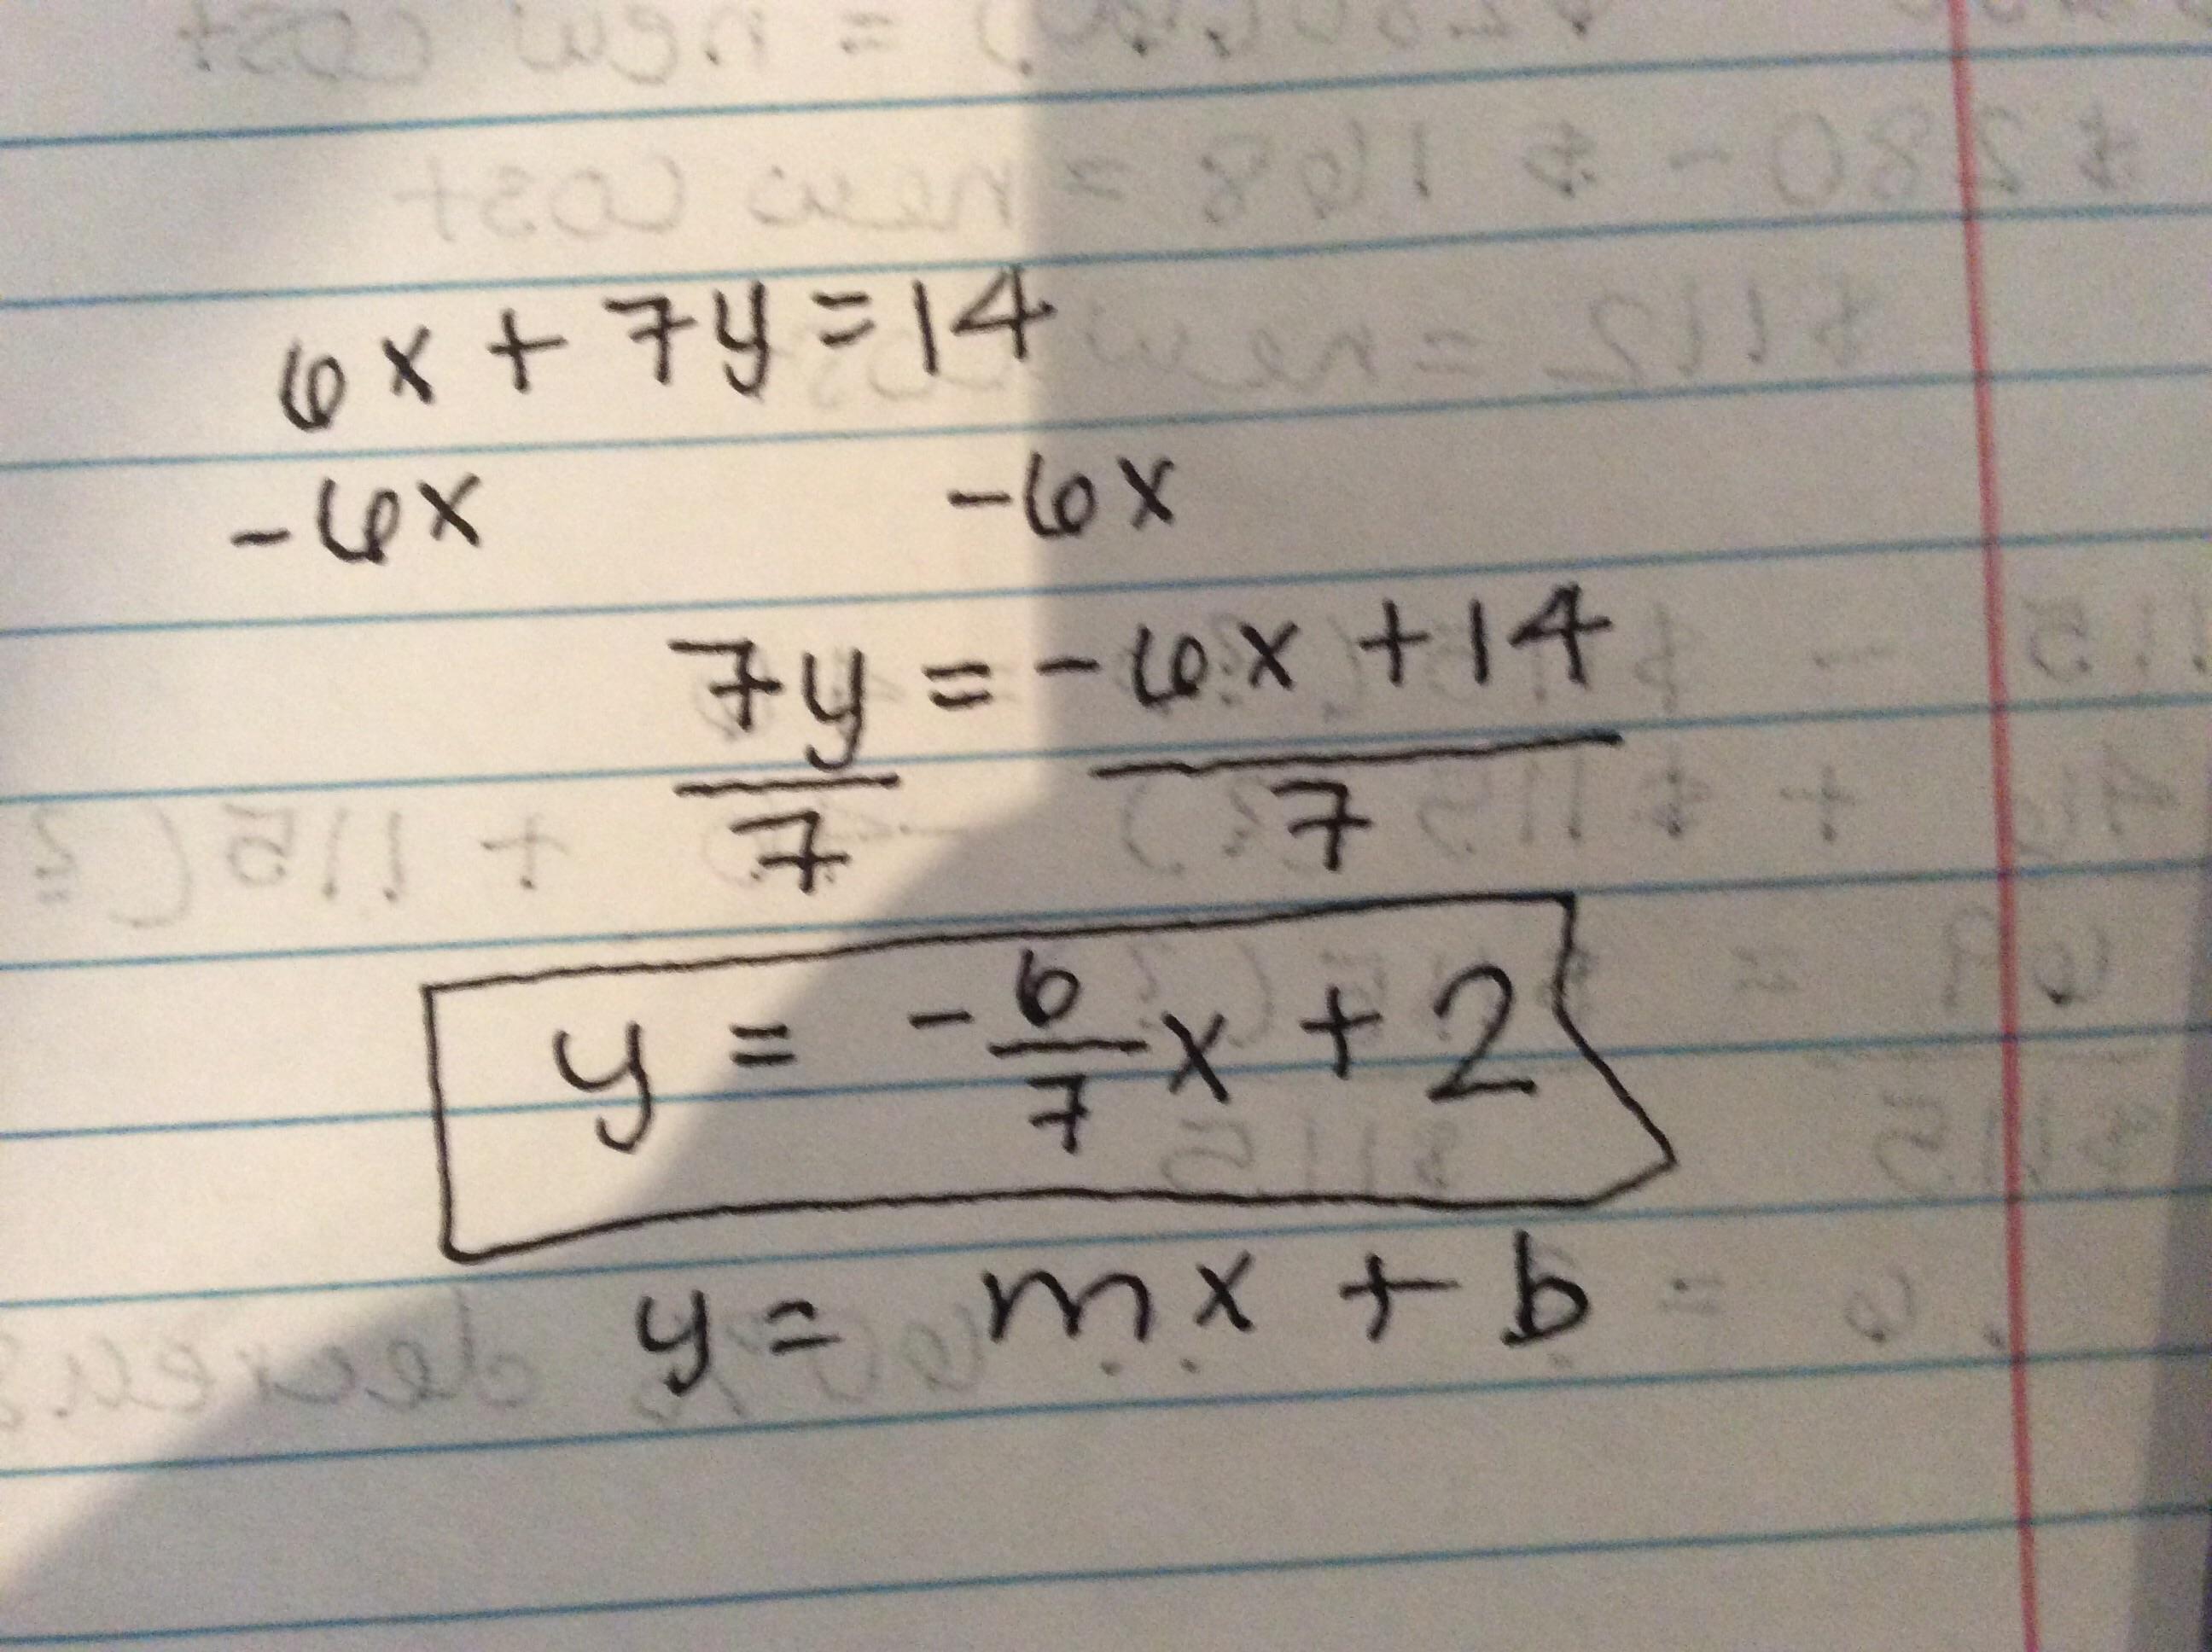 6x + 7y = 14
-6x -6x
7y = -6x + 14
7 7
y = -6/7 x + 2
y = mx + b